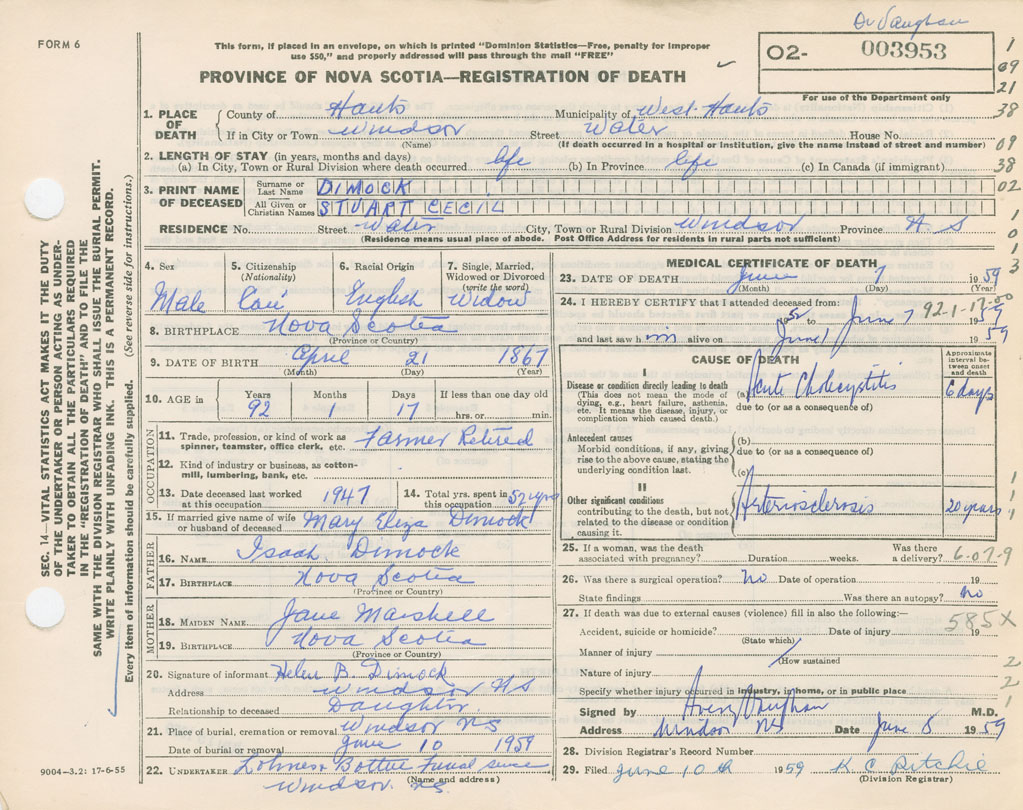 Dr Vaughan
FORM 6
This form, if placed in an envelope, on which is printed "Dominion Statistics—Free, penalty for improper
use $50," and properly addressed will pass through the mail "FREE"
02- 003953
For use of the Department only
PROVINCE OF NOVA SCOTIA—REGISTRATION OF DEATH
1
09
21
38
09
38
02
1
0
1
3
1. PLACE OF DEATH
County of Hants Municipality of West Hants
If in City or Town Windsor Street Water House No.
(Name) (If death occurred in a hospital or institution, give the name instead of street and number)
2. LENGTH OF STAY (in years, months and days)
(a) In City, Town or Rural Division where death occurred life (b) In Province life (c) In Canada (if immigrant)
3. PRINT NAME OF DECEASED
Surname or Last Name DIMOCK
All Given or Christian Names STUART CECIL
RESIDENCE No. Street Water City, Town or Rural Division Windsor Province N S
(Residence means usual place of abode. Post Office Address for residents in rural parts not sufficient)
SEC. 14—VITAL STATISTICS ACT MAKES IT THE DUTY
OF THE UNDERTAKER OR PERSON ACTING AS UNDER-
TAKER TO OBTAIN ALL THE PARTICULARS REQUIRED
IN THE "REGISTRATION OF DEATH" AND TO FILE THE
SAME WITH THE DIVISION REGISTRAR WHO SHALL ISSUE THE BURIAL PERMIT.
WRITE PLAINLY WITH UNFADING INK. THIS IS A PERMANENT RECORD.
Every item of information should be carefully supplied. (See reverse side for instructions.)
4. Sex 5. Citizenship (Nationality) 6. Racial Origin 7. Single, Married, Widowed or Divorced (write the word)
Male English Widow
8. BIRTHPLACE Nova Scotia
(Province or Country)
9. DATE OF BIRTH April 21 1867
(Month) (Day) (Year)
10. AGE in Years Months Days If less than one day old
92 1 17 hrs. or min.
OCCUPATION
11. Trade, profession, or kind of work as spinner, teamster, office clerk, etc. Farmer Retired
12. Kind of industry or business, as cotton-mill, lumbering, bank, etc.
13. Date deceased last worked at this occupation 1947 14. Total yrs. spent in this occupation 52 yrs
15. If married give name of wife or husband of deceased Mary Eliza Dimock
FATHER
16. NAME Isaah Dimock
17. BIRTHPLACE Nova Scotia
(Province or Country)
MOTHER
18. MAIDEN NAME Jane Marshell
19. BIRTHPLACE Nova Scotia
(Province or Country)
20. Signature of informant Helen B. Dimock
Address Windsor NS
Relationship to deceased Daughter
21. Place of burial, cremation or removal Windsor NS
Date of burial or removal June 10 1959
22. UNDERTAKER Funeral
(Name and address)
Windsor NS.
9004—3.2: 17-6-55
MEDICAL CERTIFICATE OF DEATH
23. DATE OF DEATH June 7 1959
(Month) (Day) (Year)
92-1-17-00
24. I HEREBY CERTIFY that I attended deceased from:
to June 7 1959
and last saw him alive on June 1959
CAUSE OF DEATH
Approximate interval between onset and death
I
Disease or condition directly leading to death (a) Acute Cholecystitis 6 days
(This does not mean the mode of dying, e.g., heart failure, asthenia, etc. It means the disease, injury, or complication which caused death.)
due to (or as a consequence of)
Antecedent causes (b)
Morbid conditions, if any, giving rise to the above cause, stating the underlying condition last.
due to (or as a consequence of)
(c)
II
Other significant conditions contributing to the death, but not related to the disease or condition causing it.
Arteriosclerosis 20 years
1
1
1
25. If a woman, was the death associated with pregnancy? Duration weeks. Was there a delivery?
6-07-9
26. Was there a surgical operation? No Date of operation 19
State findings Was there an autopsy? No
27. If death was due to external causes (violence) fill in also the following:—
585X
Accident, suicide or homicide? (State which) Date of injury 19
Manner of injury (How sustained
Nature of injury
Specify whether injury occurred in industry, in home, or in public place
2
2
1
Signed by Avery Vaughan M.D.
Address Windsor NS Date June 8 1959
28. Division Registrar's Record Number
29. Filed June 10th 1959 K. C. Ritchie
(Division Registrar)